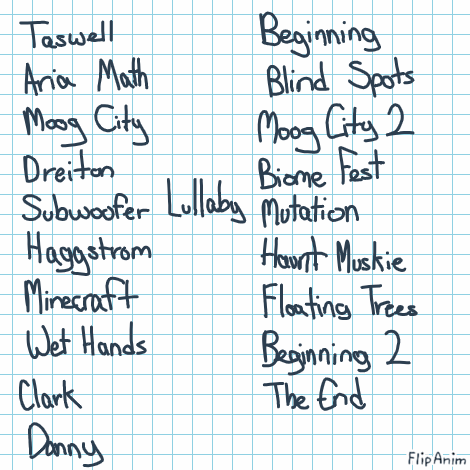 Taswell
Aria Math
Moog City
Dreiton
Subwoofer Lullaby
Haggstrom
Minecraft
Wet Hands
Clark
Danny
Beginning
Blind Spots
Moog City 2
Biome Fest
Mutation
Haunt Muskie
Floating Trees
Beginning 2
The End
FlipAnim